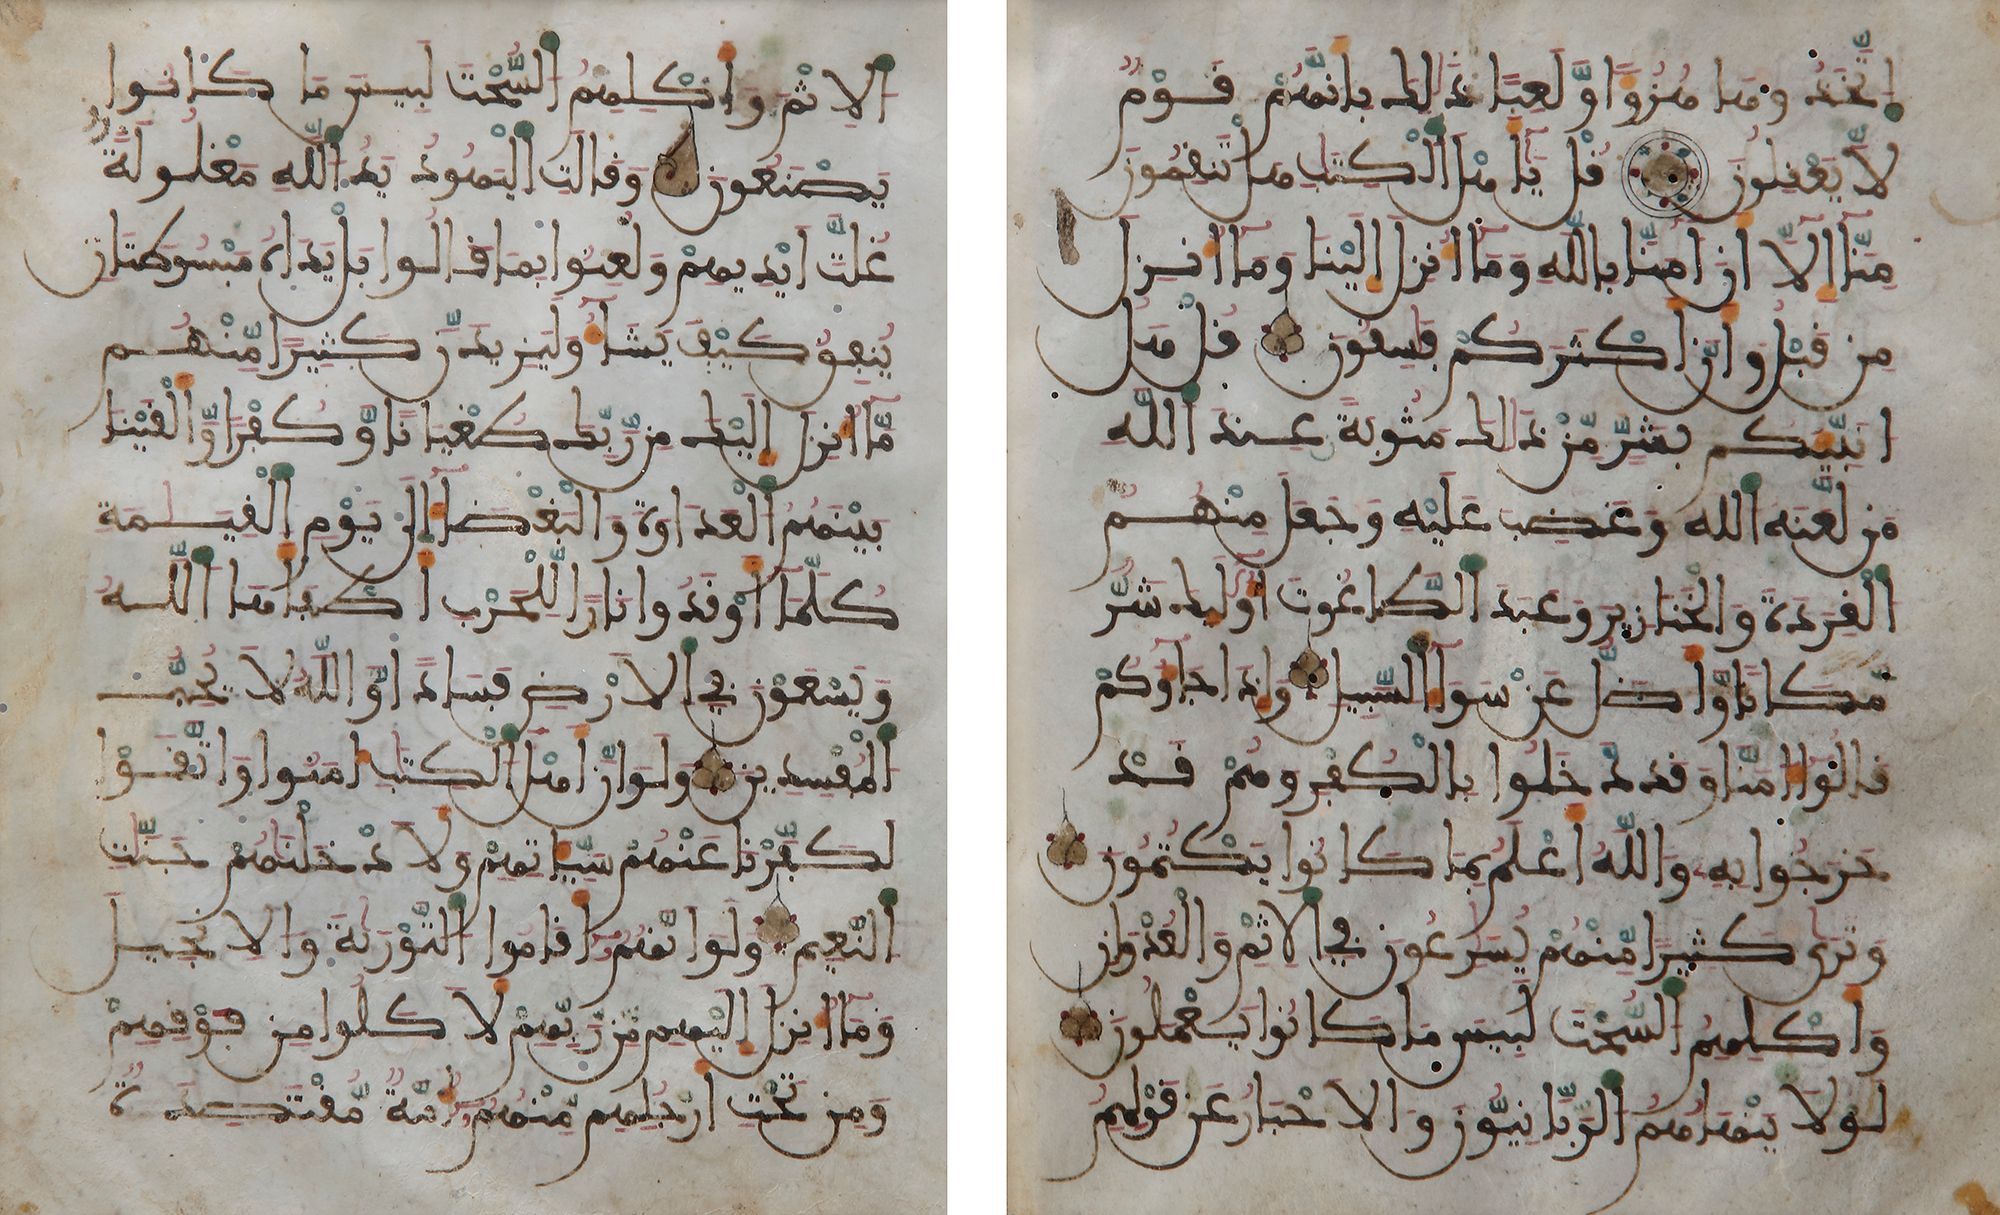 اِتَّخَذُوهَا هُزُؤًا وَّلَعِبًا ذَٰلِكَ بِأَنَّهُمْ قَوْمٌ
لَّا يَعْقِلُونَ قُلْ يَٰأَهْلَ الْكِتَٰبِ هَلْ تَنقِمُونَ
مِنَّا إِلَّا أَنْ ءَامَنَّا بِاللَّهِ وَمَا أُنزِلَ إِلَيْنَا وَمَا أُنزِلَ
مِن قَبْلُ وَأَنَّ أَكْثَرَكُمْ فَٰسِقُونَ قُلْ هَلْ
أُنَبِّئُكُم بِشَرٍّ مِّن ذَٰلِكَ مَثُوبَةً عِندَ اللَّهِ
مَن لَّعَنَهُ اللَّهُ وَغَضِبَ عَلَيْهِ وَجَعَلَ مِنْهُمُ
الْقِرَدَةَ وَالْخَنَازِيرَ وَعَبَدَ الطَّٰغُوتَ أُوْلَٰئِكَ شَرٌّ
مَّكَانًا وَّأَضَلُّ عَن سَوَاءِ السَّبِيلِ وَإِذَا جَاءُوكُمْ
قَالُوا ءَامَنَّا وَقَد دَّخَلُوا بِالْكُفْرِ وَهُمْ قَدْ
خَرَجُوا بِهِ وَاللَّهُ أَعْلَمُ بِمَا كَانُوا يَكْتُمُونَ
وَتَرَىٰ كَثِيرًا مِّنْهُمْ يُسَٰرِعُونَ فِي الْإِثْمِ وَالْعُدْوَٰنِ
وَأَكْلِهِمُ السُّحْتَ لَبِيسَ مَا كَانُوا يَعْمَلُونَ
لَوْلَا يَنْهَاهُمُ الرَّبَّانِيُّونَ وَالْأَحْبَارُ عَن قَوْلِهِمُ
الْإِثْمَ وَأَكْلِهِمُ السُّحْتَ لَبِيسَ مَا كَانُوا
يَصْنَعُونَ وَقَالَتِ الْيَهُودُ يَدُ اللَّهِ مَغْلُولَةٌ
غُلَّتْ أَيْدِيهِمْ وَلُعِنُوا بِمَا قَالُوا بَلْ يَدَاهُ مَبْسُوطَتَانِ
يُنفِقُ كَيْفَ يَشَاءُ وَلَيَزِيدَنَّ كَثِيرًا مِّنْهُم
مَّا أُنزِلَ إِلَيْكَ مِن رَّبِّكَ طُغْيَانًا وَّكُفْرًا وَّأَلْقَيْنَا
بَيْنَهُمُ الْعَدَاوَةَ وَالْبَغْضَاءَ إِلَىٰ يَوْمِ الْقِيَٰمَةِ
كُلَّمَا أَوْقَدُوا نَارًا لِّلْحَرْبِ أَطْفَأَهَا اللَّهُ
وَيَسْعَوْنَ فِي الْأَرْضِ فَسَادًا وَّاللَّهُ لَا يُحِبُّ
الْمُفْسِدِينَ وَلَوْ أَنَّ أَهْلَ الْكِتَٰبِ ءَامَنُوا وَاتَّقَوْا
لَكَفَّرْنَا عَنْهُمْ سَيِّئَاتِهِمْ وَلَأَدْخَلْنَٰهُمْ جَنَّٰتِ
النَّعِيمِ وَلَوْ أَنَّهُمْ أَقَامُوا التَّوْرَىٰةَ وَالْإِنجِيلَ
وَمَا أُنزِلَ إِلَيْهِم مِّن رَّبِّهِمْ لَأَكَلُوا مِن فَوْقِهِمْ
وَمِن تَحْتِ أَرْجُلِهِم مِّنْهُمُ أُمَّةٌ مُّقْتَصِدَةٌ